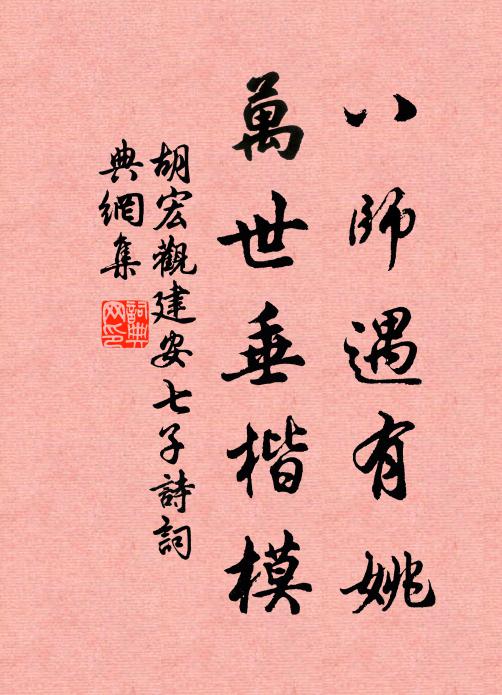 八師遇有姚
萬世垂楷模
胡宏觀建安七子詩詞
典網集
詞典網印